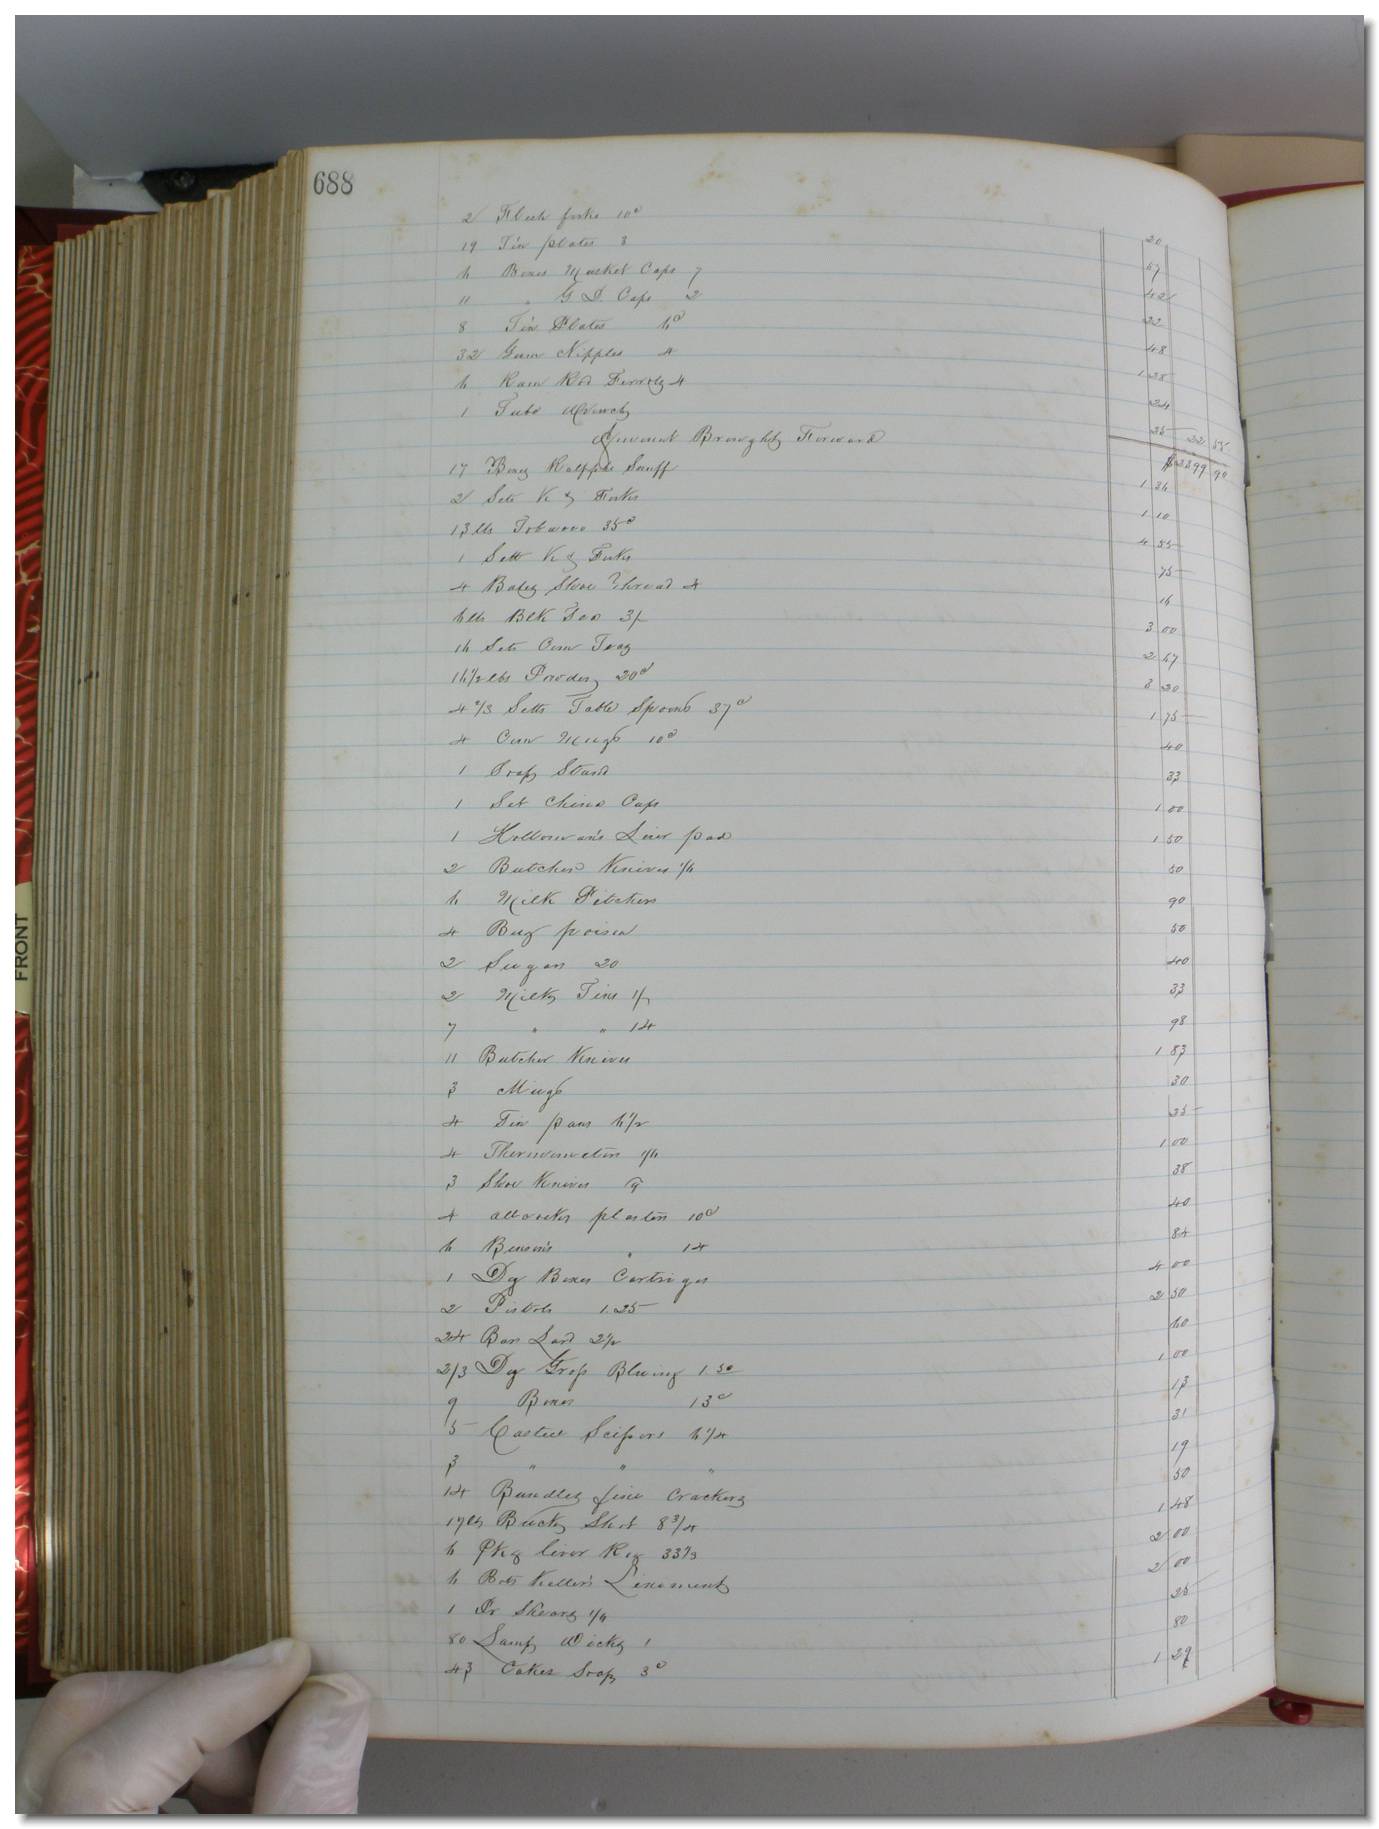 688
2 Flesh forks 10c 20
19 Tin plates 3 57
6 Boxes Musket Caps 7 42
11 " G D. Caps 2 22
8 Tin Plates 6c 48
32 Gum Nipples 4 1 28
6 Ram Rod 4 24
1 Tube Wrench 25 22 55
Amount Brought Forward $ 2299 90
17 Boxes Snuff 1 36
2 Sets K & Forks 1 10
13 lbs Tobacco 35c 4 55
1 Sett K & Forks 75
4 Shoe Thread 4 16
6 lbs Blk Tea 3/- 3 00
16 Sets Com Teas 2 67
16 1/2 lbs Powder 20c 3 30
4 2/3 Setts Table Spoons 37c 1 75
4 Com Mugs 10c 40
1 Soap Stand 33
1 Set China Cups 1 00
1 Hollman's Liver pad 1 50
2 Butcher Knives 1/6 50
6 Milk Pitchers 90
4 Bug poison 50
2 Sugar 20 40
2 Milk Tins 1/- 33
7 " " 14 98
11 Butcher Knives 1 83
3 Mugs 30
4 Tin pans 6 1/2 25
4 Thermometers 1/6 1 00
3 Shoe Knives 38
4 allcocks plasters 10c 40
6 Benson's " 14 84
1 Dz Boxes Cartridges 4 00
2 Pistols 1.25 2 50
24 Bars 2 1/2 60
2/3 Dz Gross Bluing 1.50 1 00
9 Boxes 13c 13
5 Casteel Scissors 6 1/4 31
3 " " " 19
14 Bundles fire Crackers 50
17 lbs Buck Shot 8 3/4 1 48
6 Pkg liver Reg 33 1/3 2 00
6 Bots Kellers Linament 2 00
1 Pr Shears 1/6 25
80 Lamp Wicks 1 80
43 Cakes Soap 3c 1 29
FRONT